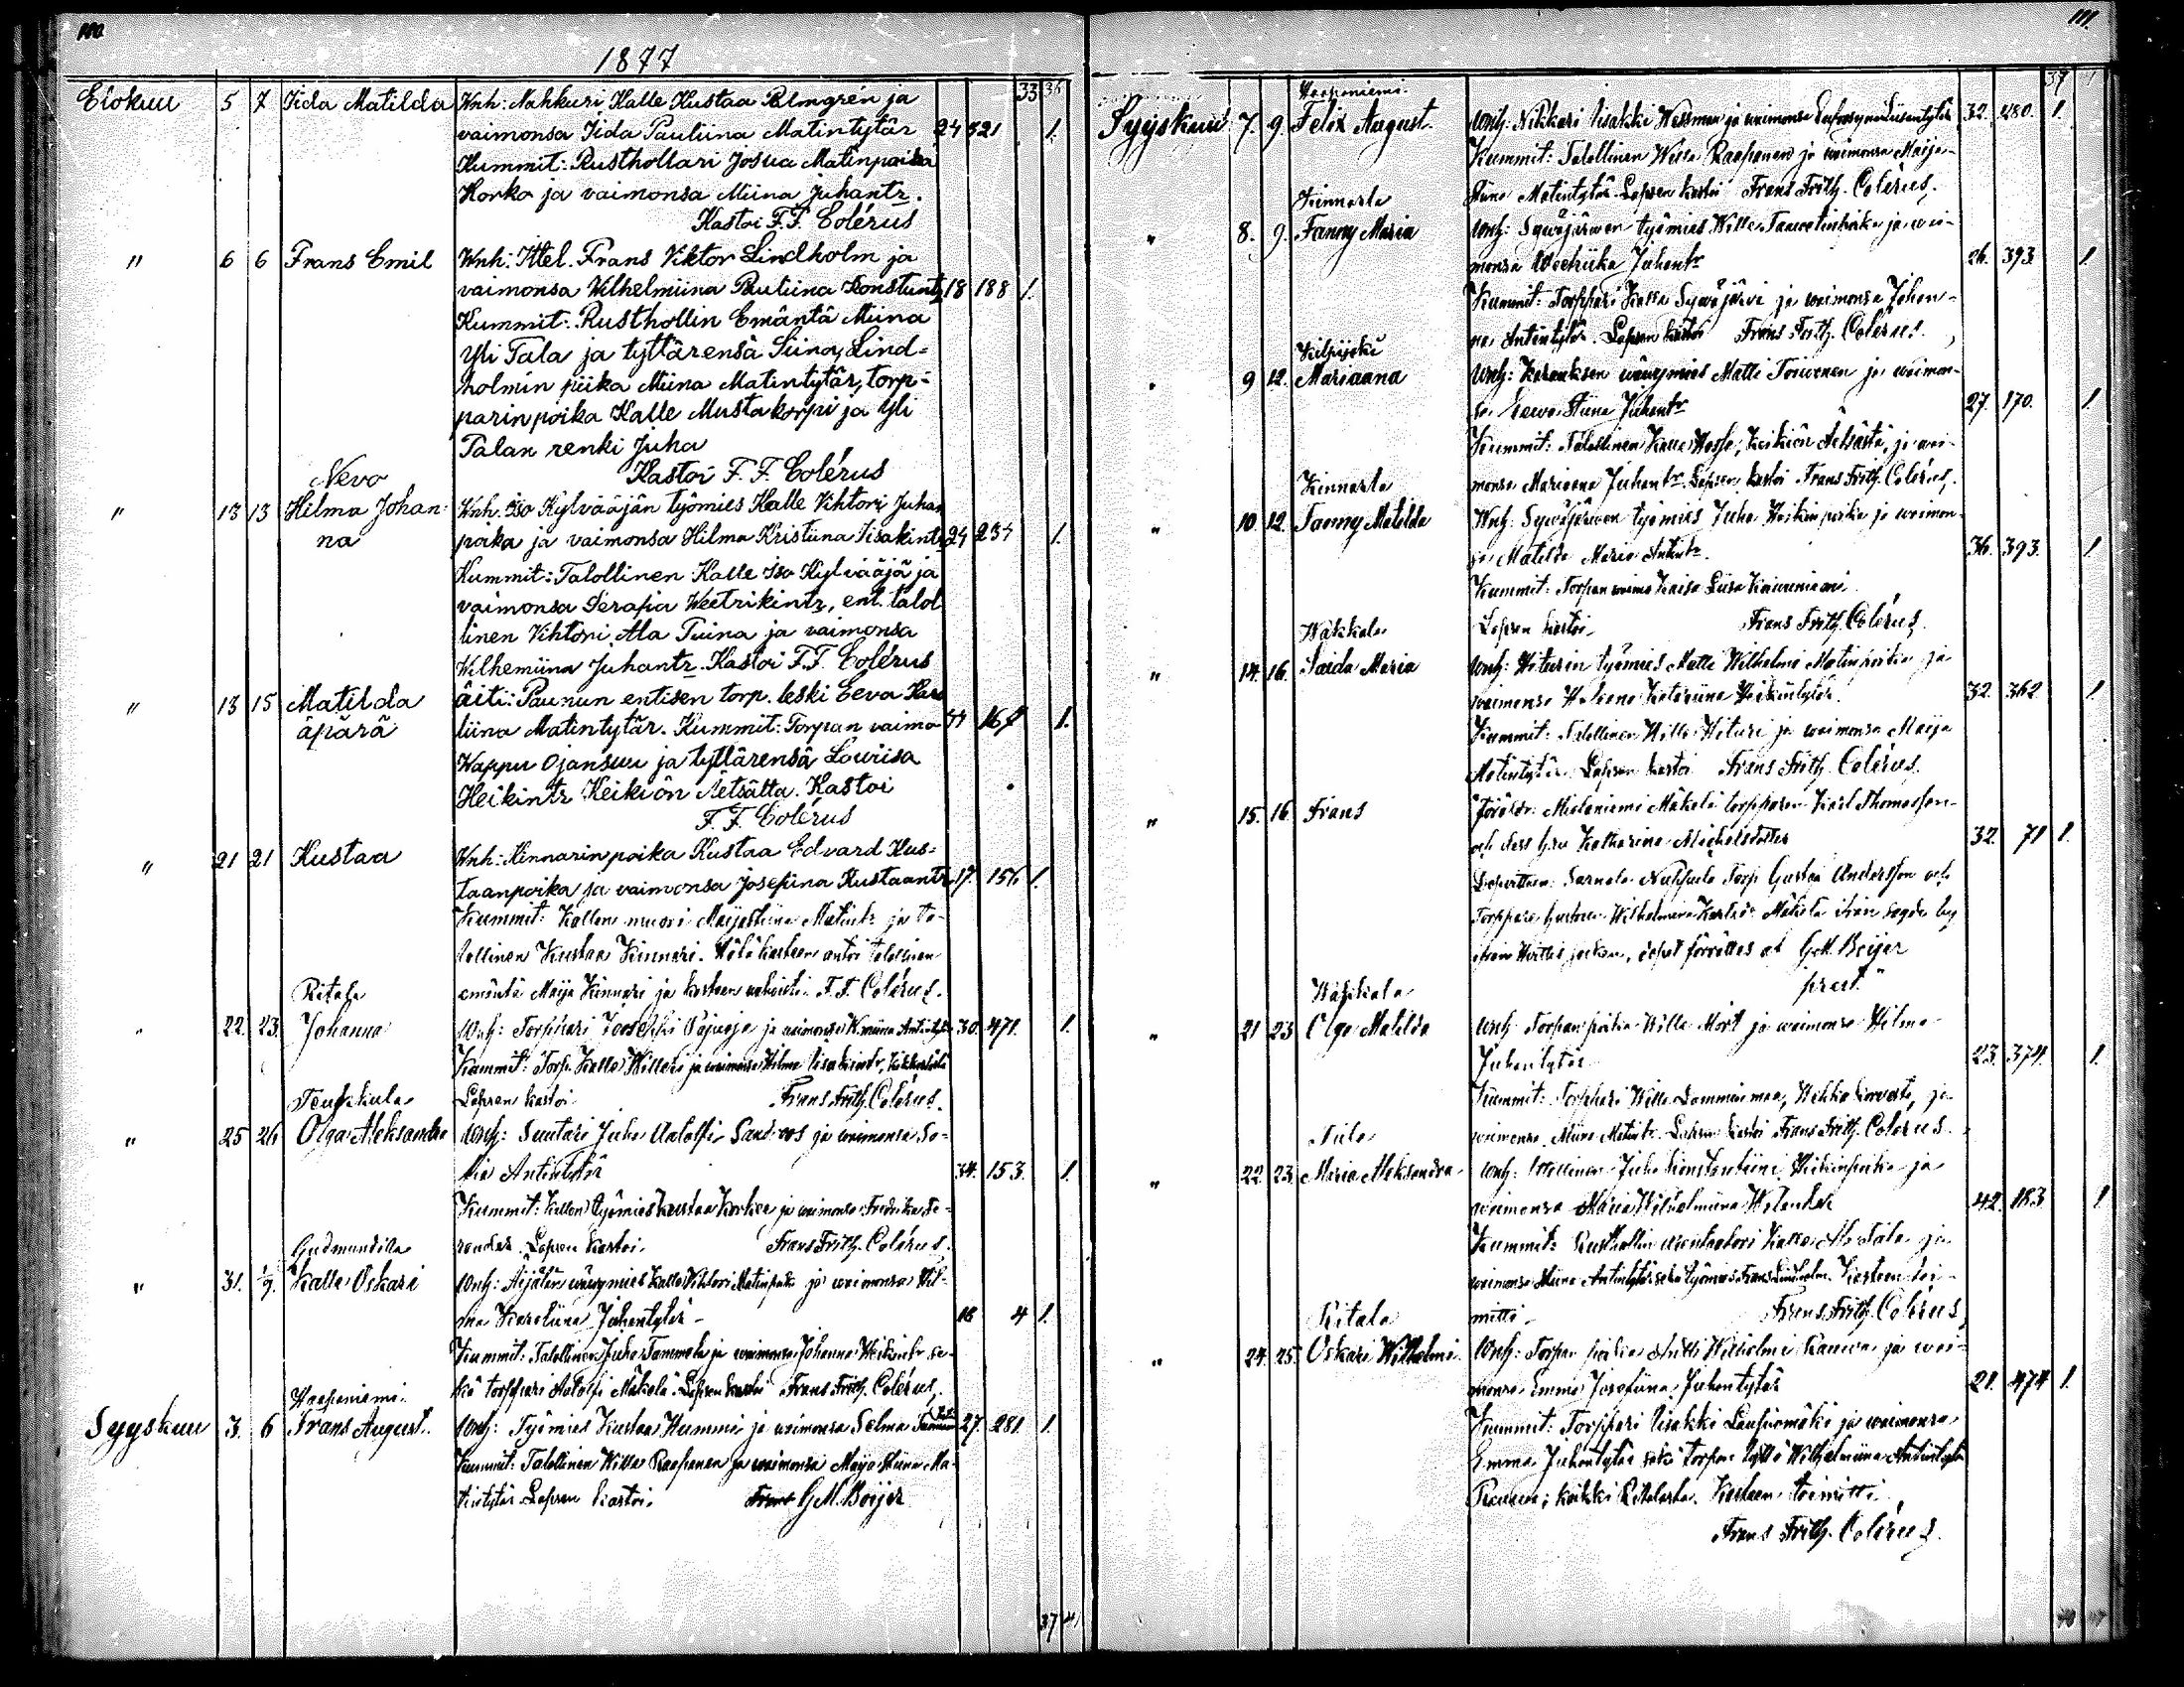 110
1877
33 36
Elokuu 5 7 Iida Matilda Wnh: Nahkuri Kalle Kustaa Palmgrén ja
vaimonsa Iida Pauliina Matintytär 24 321 1.
Kummit: Rusthollari Josua Matinpoika
Korko ja vaimonsa Miina Juhantr.
Kastoi F. F. Colérus
" 6 6 Frans Emil Wnh: Ittel. Frans Viktor Lindholm ja
vaimonsa Wilhelmiina Pauliina Konstuntr 18 188 1.
Kummit: Rusthollin Emäntä Miina
Yli Tala ja tyttärensä Siina, Lind-
holmin piika Miina Matintytär, torp-
parin poika Kalle Mustakorpi ja Yli
Talan renki Juha
Kastoi F. F. Colérus
Nevo
" 13 13 Hilma Johan- Wnh. Iso Kylvääjän työmies Kalle Vihtori Juhan
na poika ja vaimonsa Hilma Kristiina Iisakintr 24 234 1.
Kummit: Talollinen Kalle Iso Kylvääjä ja
vaimonsa Serafia Weetrikintr, ent. talol
linen Vihtori Ala Tuina ja vaimonsa
Wilhemiina Juhantr. Kastoi F. F. Colérus
" 13 15 Matilda äiti: Paunun entisen torp. leski Eeva Karo
äpärä liina Matintytär. Kummit: Torpan vaimo 44 164 1.
Wappu Ojansuu ja tyttärensä Lowisa
Heikintr Keikiön Äetsältä. Kastoi
F. F. Colérus
" 21 21 Kustaa Wnh: Kinnarin poika Kustaa Edvard Kus-
taanpoika ja vaimonsa Josefiina Kustaantr 17 156 1.
Kummit: Kallon muori Maijastiina Matintr ja ta-
lollinen Kustaa Kinnari. Hätäkasteen antoi talollinen
emäntä Maija Kinnari ja kasteen vahvisti F. F. Colérus.
Ritala
" 22. 23. Johanna Wnh: Torppari Joosehpi Pajuoja ja vaimonsa Wmiina Antintytär 30. 471. 1.
Kummit: Torp. Kalle Willari ja vaimonsa Hilma Iisakintr,
Lapsen kastoi Frans Frith. Colérus.
Teukkula
" 25 26 Olga Aleksandra Wnh: Suutari Juha Aatolfi Sand ja vaimonsa So-
fia Antintytär 34. 153. 1.
Kummit: Kallon työmies Kustaa Korkee ja vaimonsa Fredrika
Lapsen kastoi. Frans Frith. Colérus.
Gudmundila
" 31. 1/9. Kalle Oskari Wnh: Äijälän wäwymies Kalle Vihtori Matinpoika ja vaimonsa Wil-
Karoliina Juhantytär 18 4 1.
Kummit: Talollinen Juha Tammela ja vaimonsa Johanna Heikintr se-
kä torppari Aatolfi Mäkelä. Lapsen kastoi Frans Frith. Colérus.
Haapaniemi.
Syyskuu 3. 6 Frans August. Wnh: Työmies Kustaa Hummi ja vaimonsa Selma 27. 281. 1.
Kummit: Talollinen Wille Raapanen ja vaimonsa Maija Stiina Ma-
tintytär. Lapsen kastoi. G M. Boijer
37 41
111.
37
Haapaniemi.
Syyskuu 7. 9. Felix August. Wnh: Nikkari Iisakki Wessman ja vaimonsa 32. 280. 1.
Kummit: Talollinen Wille Raapanen ja vaimonsa Maija-
Stiina Matintytär. Lapsen kastoi Frans Frith. Colérus.
Kinnarla
" 8. 9. Fanny Maria Wnh: Sywäjärwen työmies Wille Taawetinpoika ja wai-
monsa Juhantr 26. 393. 1
Kummit: Torppari Kalle Sywäjärvi ja vaimonsa Johan-
na Antintytär. Lapsen kastoi Frans Frith. Colérus.
Kilpijoki
" 9 12. Mariaana Wnh: wäwymies Matti Toivonen ja vaimon-
sa Eewa Stiina Juhantr 27. 170. 1
Kummit: Talollinen Kalle Keikiön Äetsästä, ja wai-
monsa Mariaana Juhantr. Lapsen kastoi Frans Frith. Colérus.
Kinnarla
" 10. 12. Fanny Matilda Wnh: Sywäjärwen työmies Juha Heikinpoika ja vaimon-
sa Matilda Maria Antintr. 36. 393. 1
Kummit: Torpan vaimo Kaisa Liisa
Lapsen kastoi. Frans Frith. Colérus.
Wäkkälä
" 14. 16. Saida Maria Wnh: Hiturin työmies Matti Wilhelmi Matinpoika ja
vaimonsa Helena Katariina Heikintytär. 32. 362 1
Kummit: Talollinen Wille Hituri ja vaimonsa Maija
Matintytär. Lapsen kastoi Frans Frith. Colérus.
" 15. 16. Frans Föräldr: Mieloniemi Mäkelä torpparen Karl Thomasson
och dess hru Katharina Michelsdotter 32. 71 1.
Gustaf Andersson och
Wilhelmina Mäkelä ifrån
dopet förrättes af G M. Boijer
prest.
Wäkkälä
" 21 23 Olga Matilda Wnh: Torpan poika Wille Mort ja vaimonsa Hilma
Juhantytär 23. 374. 1.
Kummit: Torppari Wille Lamminmaa, ja
vaimonsa Miina Matintr. Lapsen kastoi Frans Frith. Colérus.
" 22. 23. Maria Aleksandra Wnh: Ittellinen Juha Konstantiini Heikinpoika ja
vaimonsa Maria Wilhelmiina 42. 183 1
Kummit: Rusthollin Kalle Ala Tala ja
vaimonsa Miina Antintytär sekä työmies Frans Lindholm. Kasteen toi-
mitti. Frans Frith. Colérus
Ritala
" 24. 25. Oskari Wilhelmi. Wnh: Torpan poika Antti Wilhelmi Rauwa ja wai-
monsa Emma Josefiina Juhantytär 21. 474 1.
Kummit: Torppari Iisakki ja vaimonsa
Emma Juhantytär sekä torpan tyttö Wilhelmiina Antintytär
kaikki Ritalasta. Kasteen toimitti.
Frans Frith. Colérus.